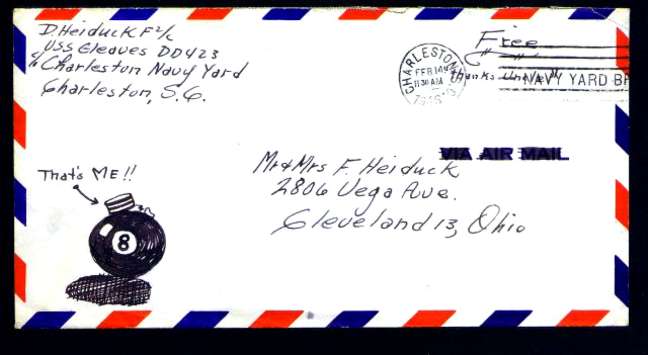 D. Heiduck F 2/c
USS Gleaves DD423
c/o Charleston Navy Yard
Charleston, S.C.
Free
"thanks Uncle"
CHARLESTON
FEB 14
11 30 AM
NAVY YARD
VIA AIR MAIL
Mr & Mrs F. Heiduck
2806 Vega Ave.
Cleveland 13, Ohio
That's ME!!
8